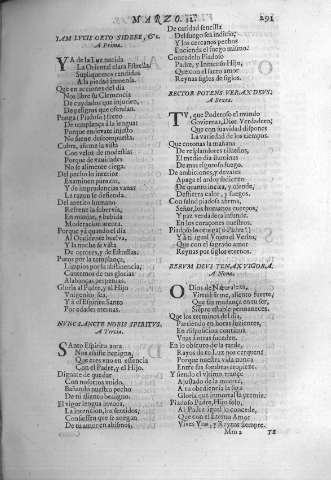 MARZO. 291
IAM LVCIS ORTO SIDERE, &c.
A Prima.
YA de la Luz nacida
La Oriental clara Estrella,
Supliquemos rendidos
A la piedad inmensa.
Que en acciones del dia
Nos libre su Clemencia
De cuydados que injurien,
De peligros que ofendan.
Ponga (Piadoso) freno
De templança à la lengua:
Porque
No suene
Cubra, assome la vista
Con velos de modestia;
Porque de vanidades
No se alimente ciega.
Del pecho lo interior
Examinen purezas,
Y de imprudencias vanas
La razon se defienda.
Del apetito humano
Refrene la sobervia,
En manjar, y bebida
Moderacion
Porque yà quando el dia
Al Occidente buelva,
Y la noche se vista
De horrores, y de Estrellas:
Puros por la templança,
Limpios por la abstinencia;
Cantemos de tus glorias
Alabanças perpetuas.
Gloria al Padre, y al Hijo
Vnigenito sea,
Y à el Espiritu Santo
Por edades eternas.
NVNC SANCTE NOBIS SPIRITVS.
A Tercia.
SAnto Espiritu aora
Nos assiste benigno,
Que eres vno en essencia
Con el Padre, y el Hijo.
Dignate de quedar
Con nosotros vnido,
Bañando nuestro pecho
De tu aliento benigno.
El vigor, lengua, invoca,
La intencion, los sentidos;
Confiessen que se anegan
De tu amor en abismos,
De caridad sencilla
Del fuego sea indicio;
Y los cercanos pechos
Encienda el fuego mismo.
Concedelo Piadoso
Padre, y Inmenso Hijo,
Que con el sacro amor
Reynas siglos de siglos.
RECTOR POTENS VERAX DEVS,
A Sexta.
TV, que Poderoso el mundo
Goviernas, Dios Verdadero;
Que con suavidad dispones
La variedad de los tiempos.
Que entonas la mañana
De resplandores risueños,
El medio dia iluminas
De mas rigoroso fuego.
De ambiciones, y devaneos
Apaga el ardor
De quanto incita, y ofende,
Destierra calor, y fuegos.
Con salud piadosa abriga,
Señor, los humanos cuerpos,
Y paz verdadera infunde
En los coraçones nuestros.
Piadoso lo otorga (ò Padre!)
Y à ti igual Vnico el Verbo,
Que con el sagrado amor
Reynas por siglos eternos.
RERVM DEVS TENAX VIGOR,
A Nona.
O Dios de Naturaleza,
Virtud firme, aliento fuerte,
Que sin mudança en tu ser,
Siépre estable permaneces.
Que los terminos del dia,
Partiendo en horas luzientes,
En disposicion continua
Vnas à otras suceden.
En lo obscuro de la tarde
Rayos de tu Luz nos concede
Porque nuestra vida nunca
Entre las sombras tropiece.
Y siendo el vltimo trance
Ajustado de la muerte,
A tu obediencia la siga
Gloria que inmortal la premie.
Piadoso Padre, Hijo solo,
Al Padre igual lo concede,
Que con el Eterno Amor
Vives Vno, y Reynas siempre.
Mm 2 TE